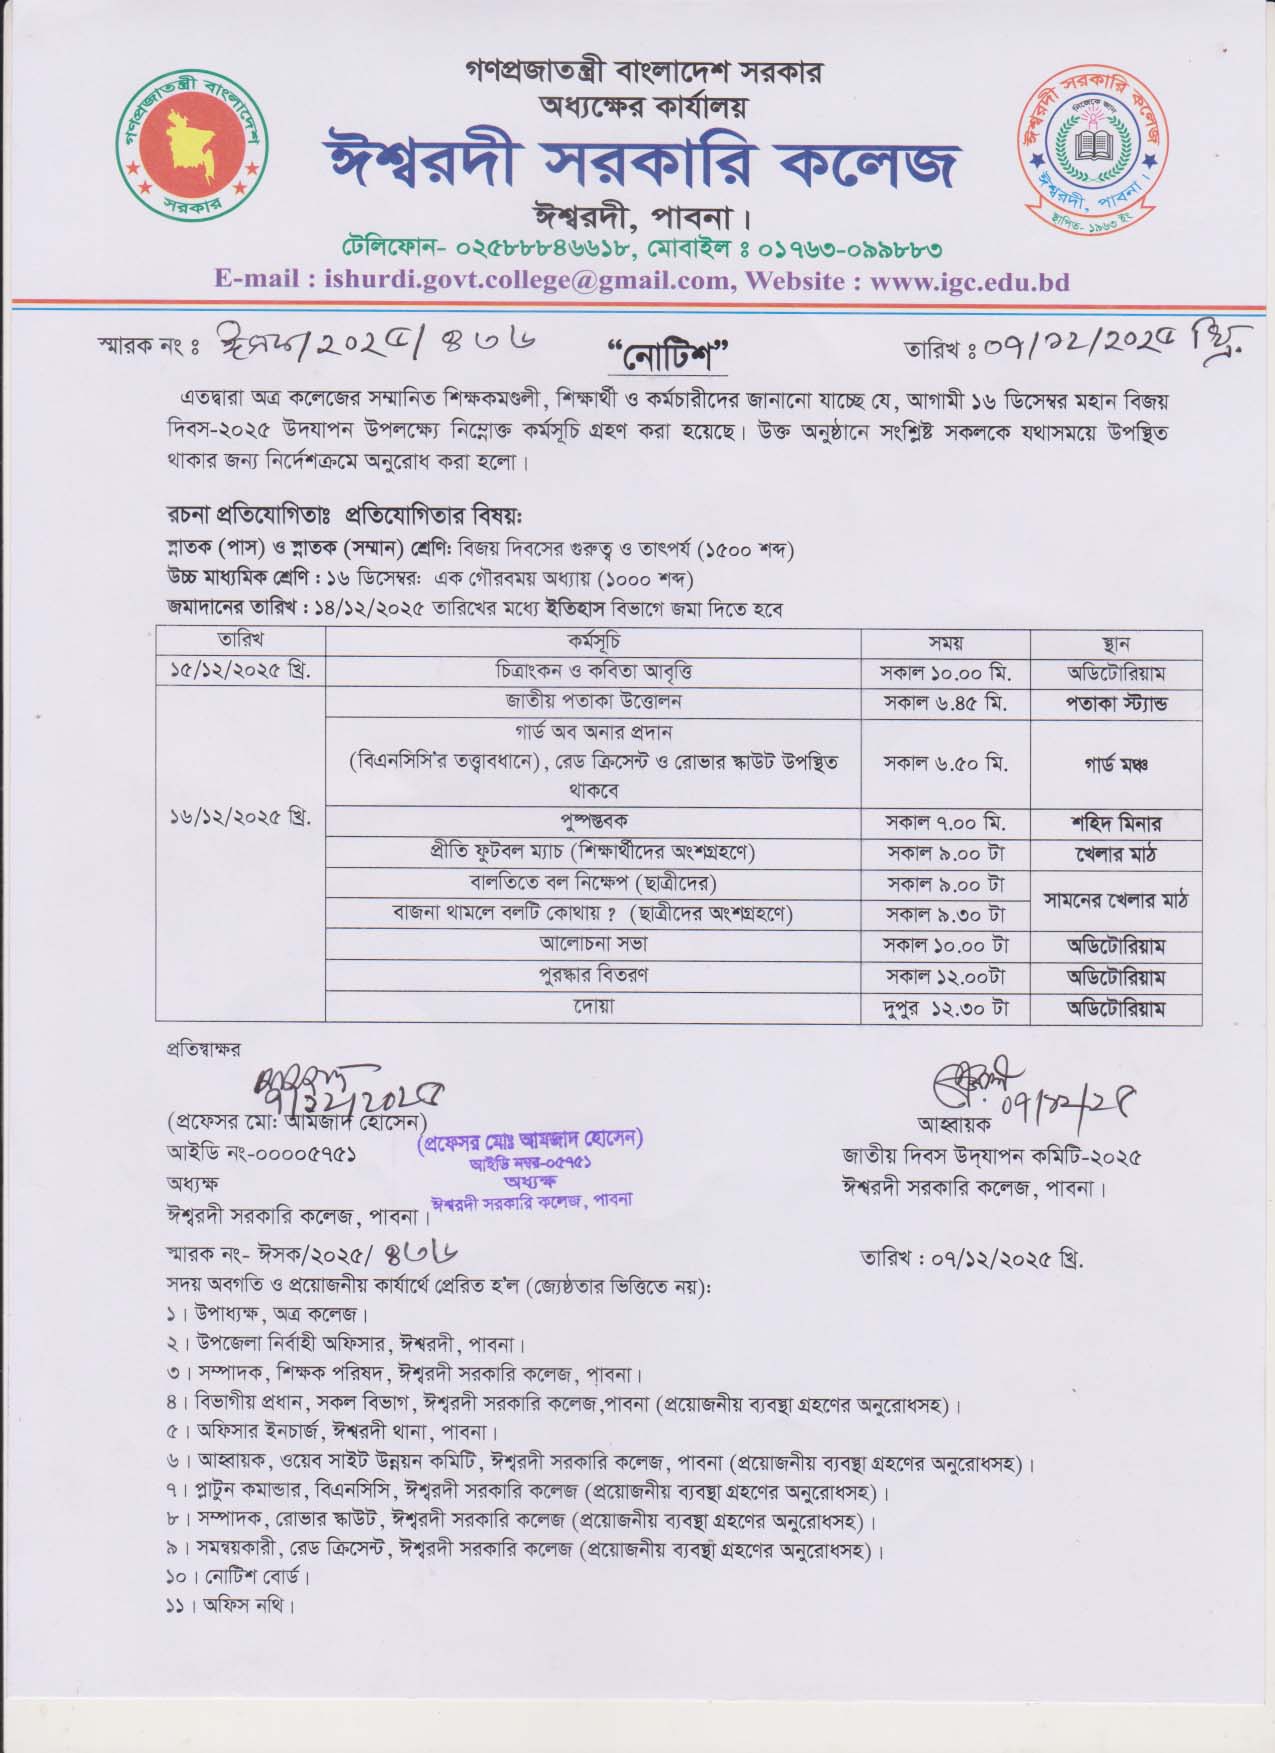 গণপ্রজাতন্ত্রী বাংলাদেশ সরকার
অধ্যক্ষের কার্যালয়
ঈশ্বরদী সরকারি কলেজ
ঈশ্বরদী, পাবনা।
টেলিফোন- ০২৫৮৮৮৪৬৬১৮, মোবাইল ঃ ০১৭৬৩-০৯৯৮৮৩
E-mail : ishurdi.govt.college@gmail.com, Website : www.igc.edu.bd
গণপ্রজাতন্ত্রী বাংলাদেশ
সরকার
ঈশ্বরদী সরকারি কলেজ
ঈশ্বরদী, পাবনা।
স্থাপিত- ১৯৬৩ ইং
স্মারক নং ঃ ঈসক/২০২৫/৪৩৬ "নোটিশ" তারিখ ঃ ০৭/১২/২০২৫ খ্রি.
এতদ্বারা অত্র কলেজের সম্মানিত শিক্ষকমণ্ডলী, শিক্ষার্থী ও কর্মচারীদের জানানো যাচ্ছে যে, আগামী ১৬ ডিসেম্বর মহান বিজয়
দিবস-২০২৫ উদযাপন উপলক্ষ্যে নিম্নোক্ত কর্মসূচি গ্রহণ করা হয়েছে। উক্ত অনুষ্ঠানে সংশ্লিষ্ট সকলকে যথাসময়ে উপস্থিত
থাকার জন্য নির্দেশক্রমে অনুরোধ করা হলো।
রচনা প্রতিযোগিতাঃ প্রতিযোগিতার বিষয়:
স্নাতক (পাস) ও স্নাতক (সম্মান) শ্রেণি: বিজয় দিবসের গুরুত্ব ও তাৎপর্য (১৫০০ শব্দ)
উচ্চ মাধ্যমিক শ্রেণি : ১৬ ডিসেম্বর: এক গৌরবময় অধ্যায় (১০০০ শব্দ)
জমাদানের তারিখ : ১৪/১২/২০২৫ তারিখের মধ্যে ইতিহাস বিভাগে জমা দিতে হবে
তারিখ কর্মসূচি সময় স্থান
১৫/১২/২০২৫ খ্রি. চিত্রাংকন ও কবিতা আবৃত্তি সকাল ১০.০০ মি. অডিটোরিয়াম
জাতীয় পতাকা উত্তোলন সকাল ৬.৪৫ মি. পতাকা স্ট্যান্ড
গার্ড অব অনার প্রদান
(বিএনসিসি'র তত্ত্বাবধানে), রেড ক্রিসেন্ট ও রোভার স্কাউট উপস্থিত সকাল ৬.৫০ মি. গার্ড মঞ্চ
থাকবে
১৬/১২/২০২৫ খ্রি. পুষ্পস্তবক সকাল ৭.০০ মি. শহিদ মিনার
প্রীতি ফুটবল ম্যাচ (শিক্ষার্থীদের অংশগ্রহণে) সকাল ৯.০০ টা খেলার মাঠ
বালতিতে বল নিক্ষেপ (ছাত্রীদের) সকাল ৯.০০ টা সামনের খেলার মাঠ
বাজনা থামলে বলটি কোথায় ? (ছাত্রীদের অংশগ্রহণে) সকাল ৯.৩০ টা
আলোচনা সভা সকাল ১০.০০ টা অডিটোরিয়াম
পুরস্কার বিতরণ সকাল ১২.০০টা অডিটোরিয়াম
দোয়া দুপুর ১২.৩০ টা অডিটোরিয়াম
প্রতিস্বাক্ষর
৭/১২/২০২৫
(প্রফেসর মো: আমজাদ হোসেন)
আইডি নং-০০০০৫৭৫১
অধ্যক্ষ
ঈশ্বরদী সরকারি কলেজ, পাবনা।
(প্রফেসর মোঃ আমজাদ হোসেন)
আইডি নম্বর-০৫৭৫১
অধ্যক্ষ
ঈশ্বরদী সরকারি কলেজ, পাবনা
০৭/১২/২৫
আহ্বায়ক
জাতীয় দিবস উদ্‌যাপন কমিটি-২০২৫
ঈশ্বরদী সরকারি কলেজ, পাবনা।
স্মারক নং- ঈসক/২০২৫/ ৪৩৬ তারিখ : ০৭/১২/২০২৫ খ্রি.
সদয় অবগতি ও প্রয়োজনীয় কার্যার্থে প্রেরিত হ'ল (জ্যেষ্ঠতার ভিত্তিতে নয়):
১। উপাধ্যক্ষ, অত্র কলেজ।
২। উপজেলা নির্বাহী অফিসার, ঈশ্বরদী, পাবনা।
৩। সম্পাদক, শিক্ষক পরিষদ, ঈশ্বরদী সরকারি কলেজ, পাবনা।
৪। বিভাগীয় প্রধান, সকল বিভাগ, ঈশ্বরদী সরকারি কলেজ,পাবনা (প্রয়োজনীয় ব্যবস্থা গ্রহণের অনুরোধসহ)।
৫। অফিসার ইনচার্জ, ঈশ্বরদী থানা, পাবনা।
৬। আহ্বায়ক, ওয়েব সাইট উন্নয়ন কমিটি, ঈশ্বরদী সরকারি কলেজ, পাবনা (প্রয়োজনীয় ব্যবস্থা গ্রহণের অনুরোধসহ)।
৭। প্লাটুন কমান্ডার, বিএনসিসি, ঈশ্বরদী সরকারি কলেজ (প্রয়োজনীয় ব্যবস্থা গ্রহণের অনুরোধসহ)।
৮। সম্পাদক, রোভার স্কাউট, ঈশ্বরদী সরকারি কলেজ (প্রয়োজনীয় ব্যবস্থা গ্রহণের অনুরোধসহ)।
৯। সমন্বয়কারী, রেড ক্রিসেন্ট, ঈশ্বরদী সরকারি কলেজ (প্রয়োজনীয় ব্যবস্থা গ্রহণের অনুরোধসহ)।
১০। নোটিশ বোর্ড।
১১। অফিস নথি।